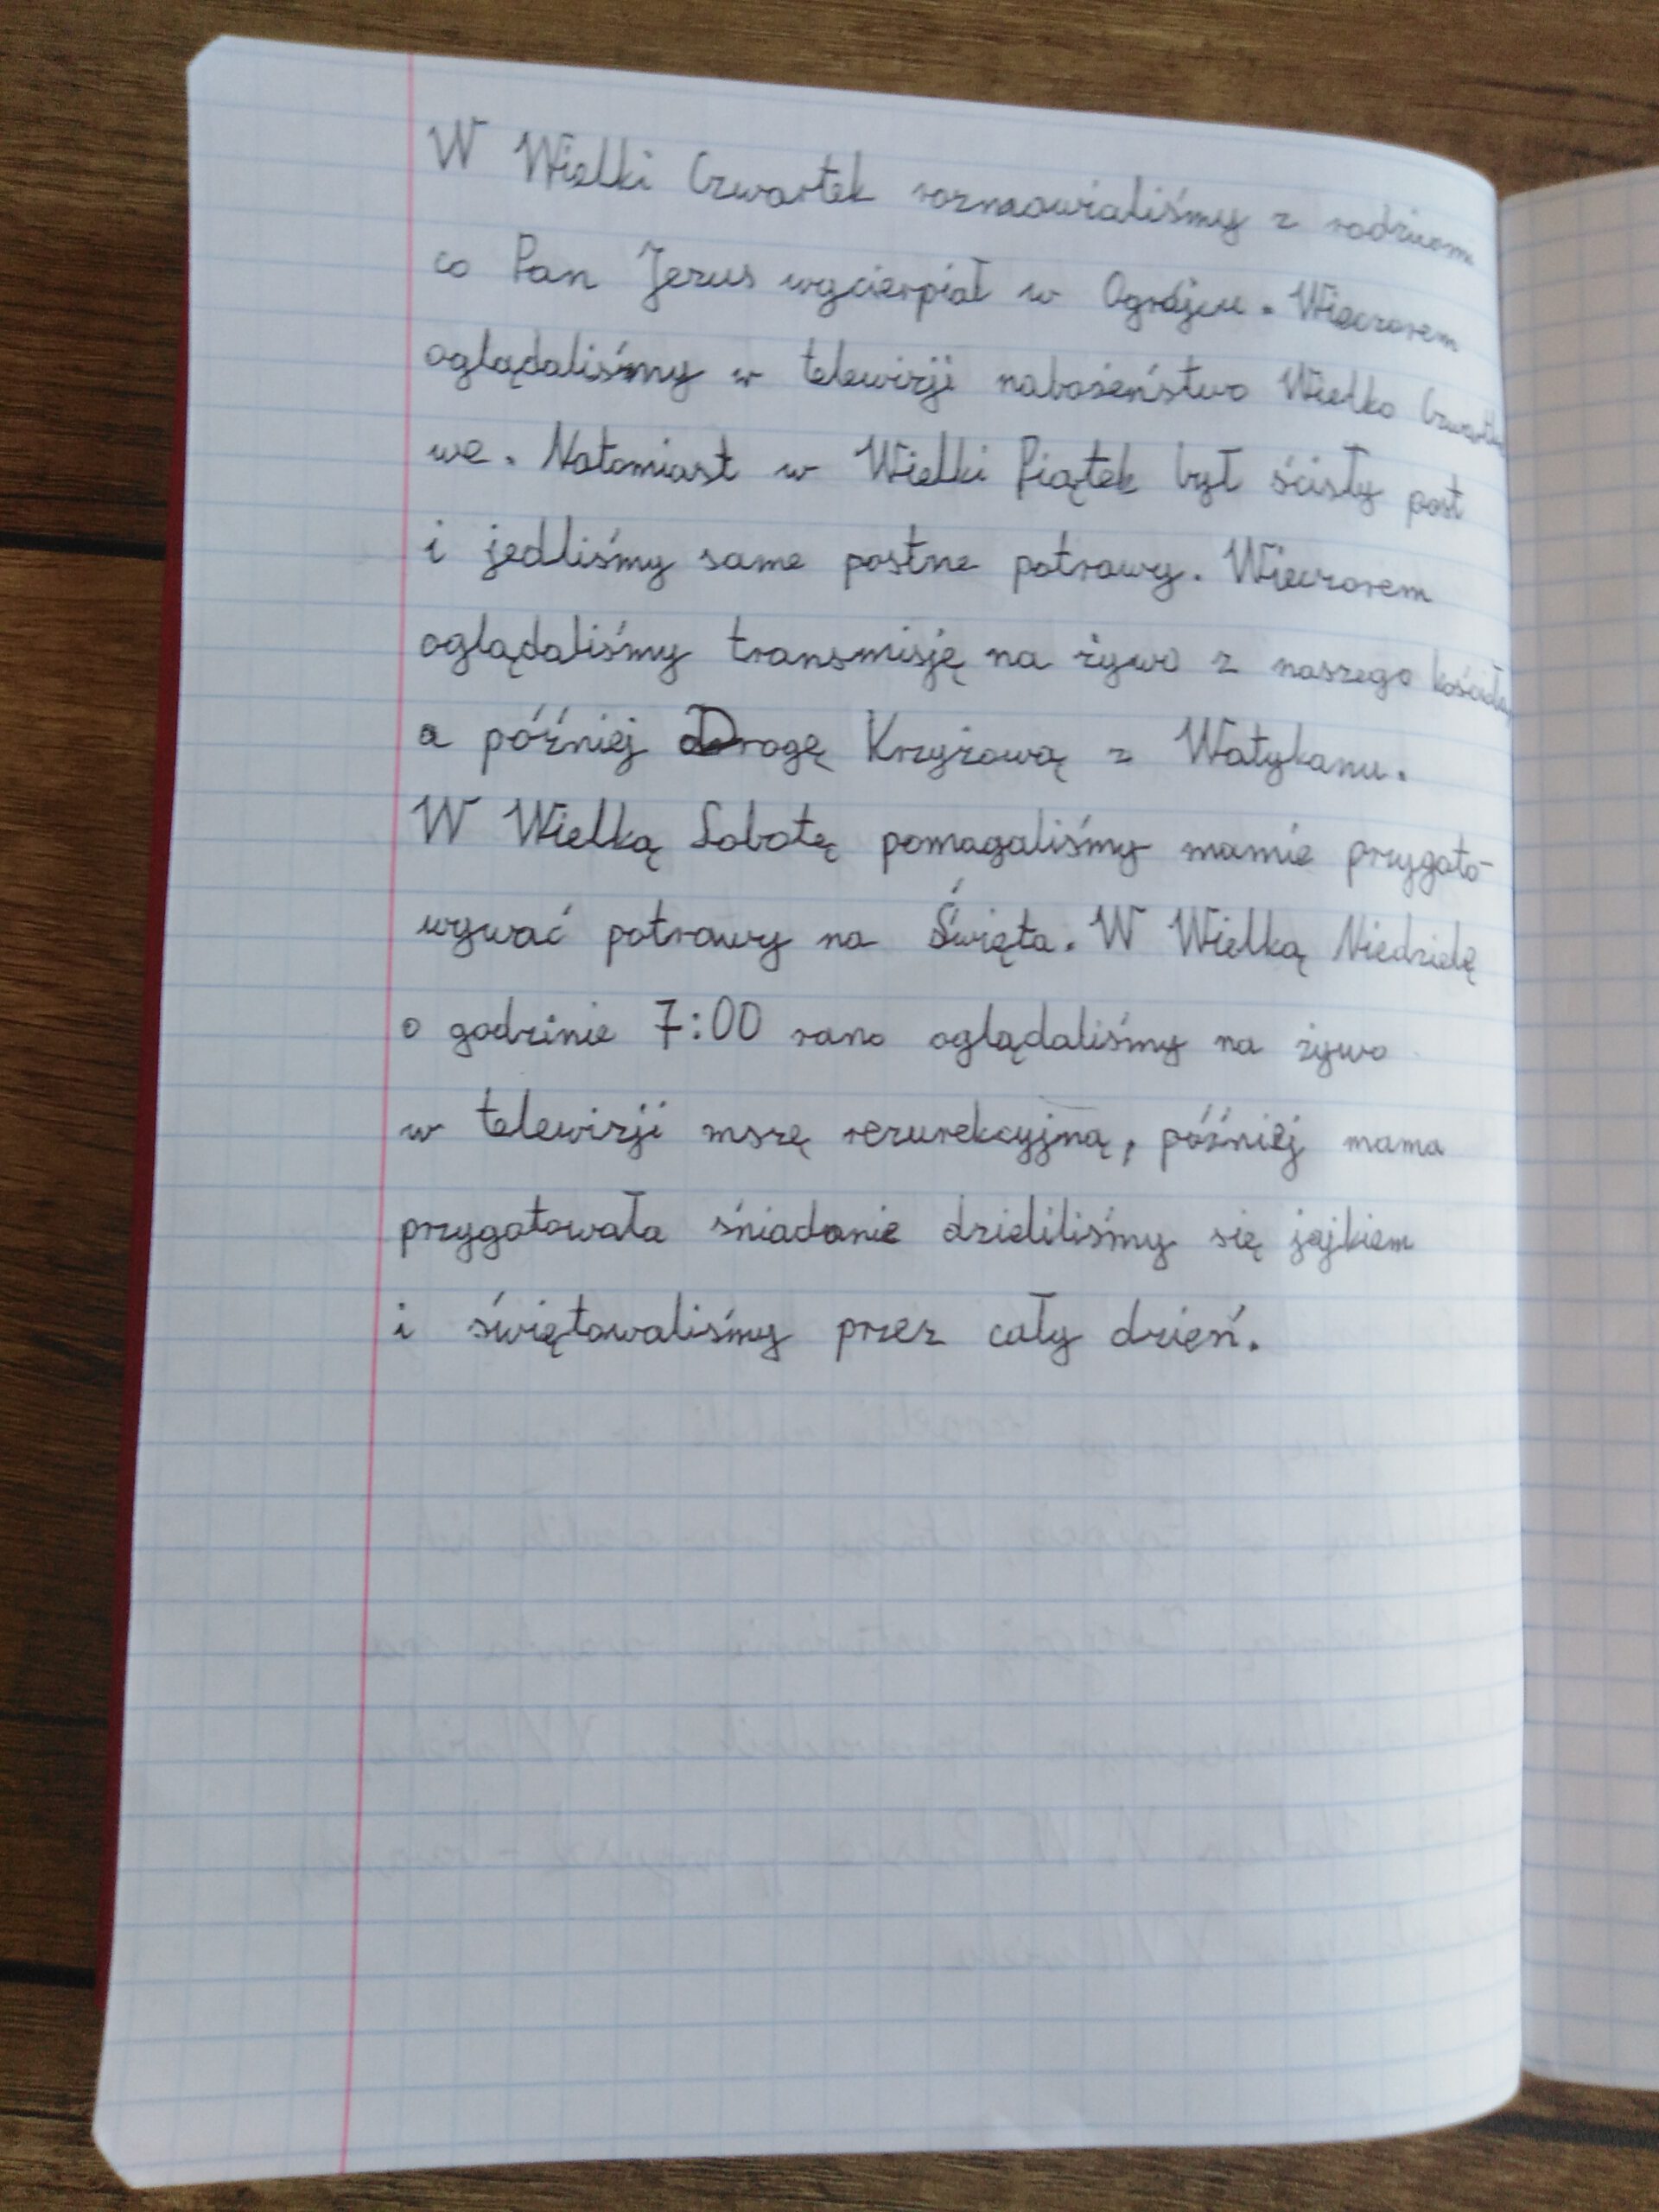 W Wielki Czwartek rozmawialiśmy z rodzicami
co Pan Jezus wycierpiał w Ogrójcu. Wieczorem
oglądaliśmy w telewizji nabożeństwo Wielko
we. Natomiast w Wielki Piątek był ścisły post
i jedliśmy same postne potrawy. Wieczorem
oglądaliśmy transmisję na żywo z naszego kościoła,
a później Drogę Krzyżową z Watykanu.
W Wielką Sobotę pomagaliśmy mamie przygoto-
wywać potrawy na Święta. W Wielką Niedzielę
o godzinie 7:00 rano oglądaliśmy na żywo
w telewizji mszę rezurekcyjną, później mama
przygotowała śniadanie dzieliliśmy się jajkiem
i świętowaliśmy przez cały dzień.